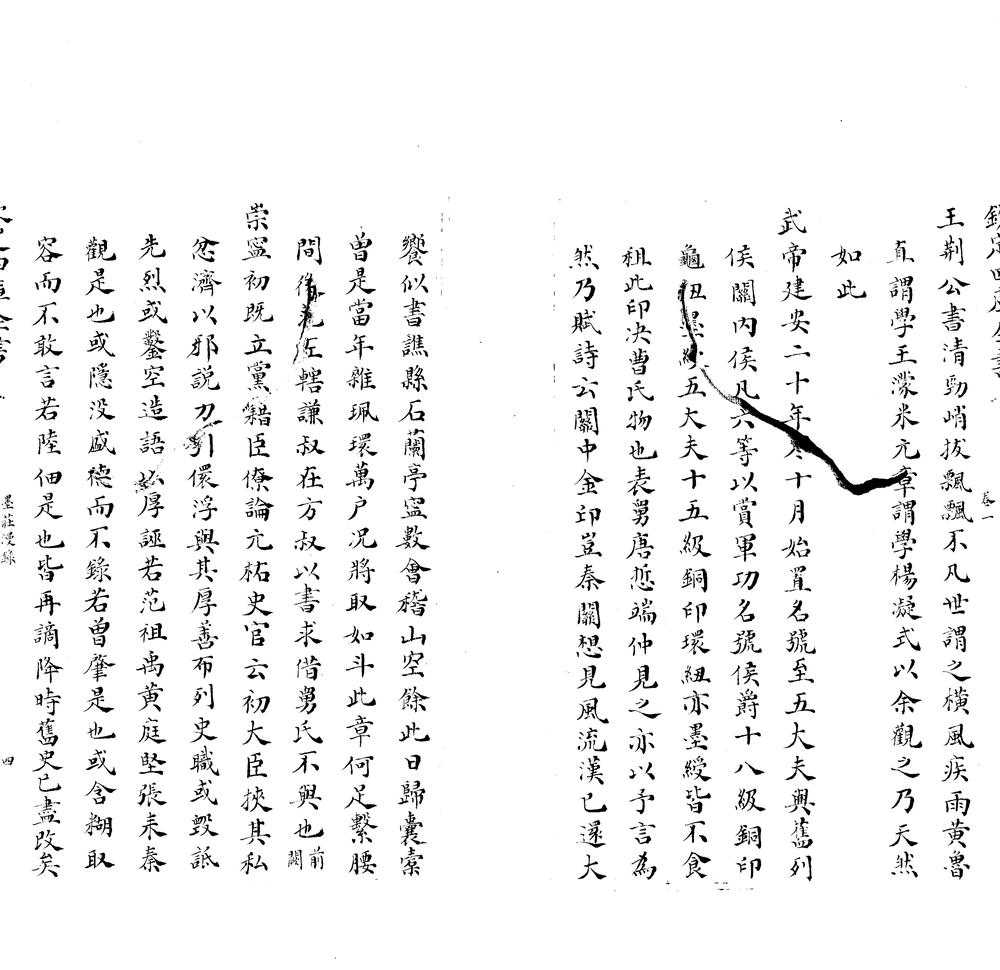 王荆公書清勁峭拔飄飄不凡世謂之橫風疾雨黄魯
直謂學王濛米元章謂學楊凝式以余觀之乃天然
如此
卷一
武帝建安二十年冬十月始置名號至五大夫與舊列
侯關内侯凡六等以賞軍功名號侯爵十八級銅印
龜紐墨綬五大夫十五級銅印環紐亦墨綬皆不食
租此印决曹氏物也表舅唐悊端仲見之亦以予言為
然乃賦詩云關中金印豈秦關想見風流漢已還大
饗似書譙縣石蘭亭寧數會稽山空餘此日歸囊橐
曽是當年雜珮環萬户况將取如斗此章何足繫腰
間後 左轄謙叔在方叔以書求借舅氏不與也前闕
崇寧初既立黨籍臣僚論元祐史官云初大臣挾其私
忿濟以邪説力引儇浮與其厚善布列史職或毁詆
先烈或鑿空造語以厚誣若范祖禹黄庭堅張耒秦
觀是也或隱没盛德而不錄若曽肇是也或含糊取
容而不敢言若陸佃是也皆再謫降時舊史已盡改矣
墨莊漫錄
四